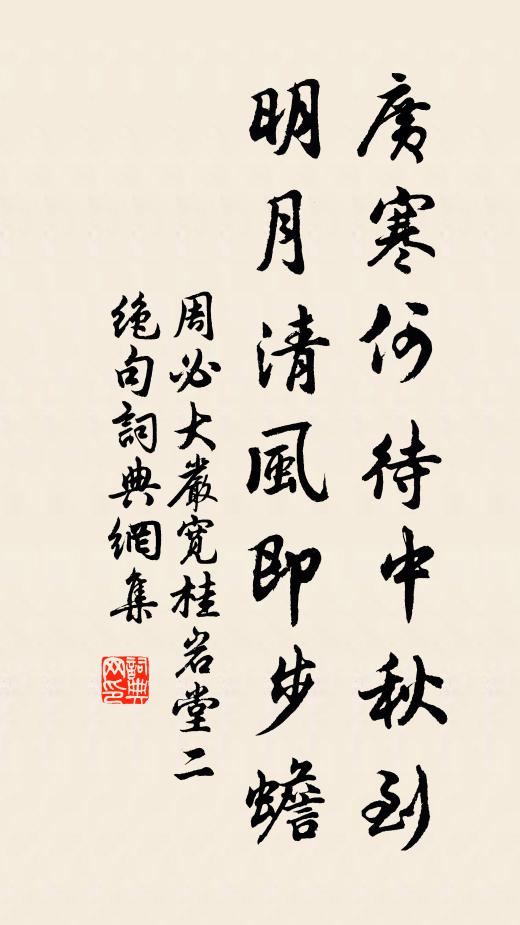 廣寒何待中秋到
明月清風即步蟾
周必大嚴寬桂岩堂二
絶句詞典網集
詞典網印